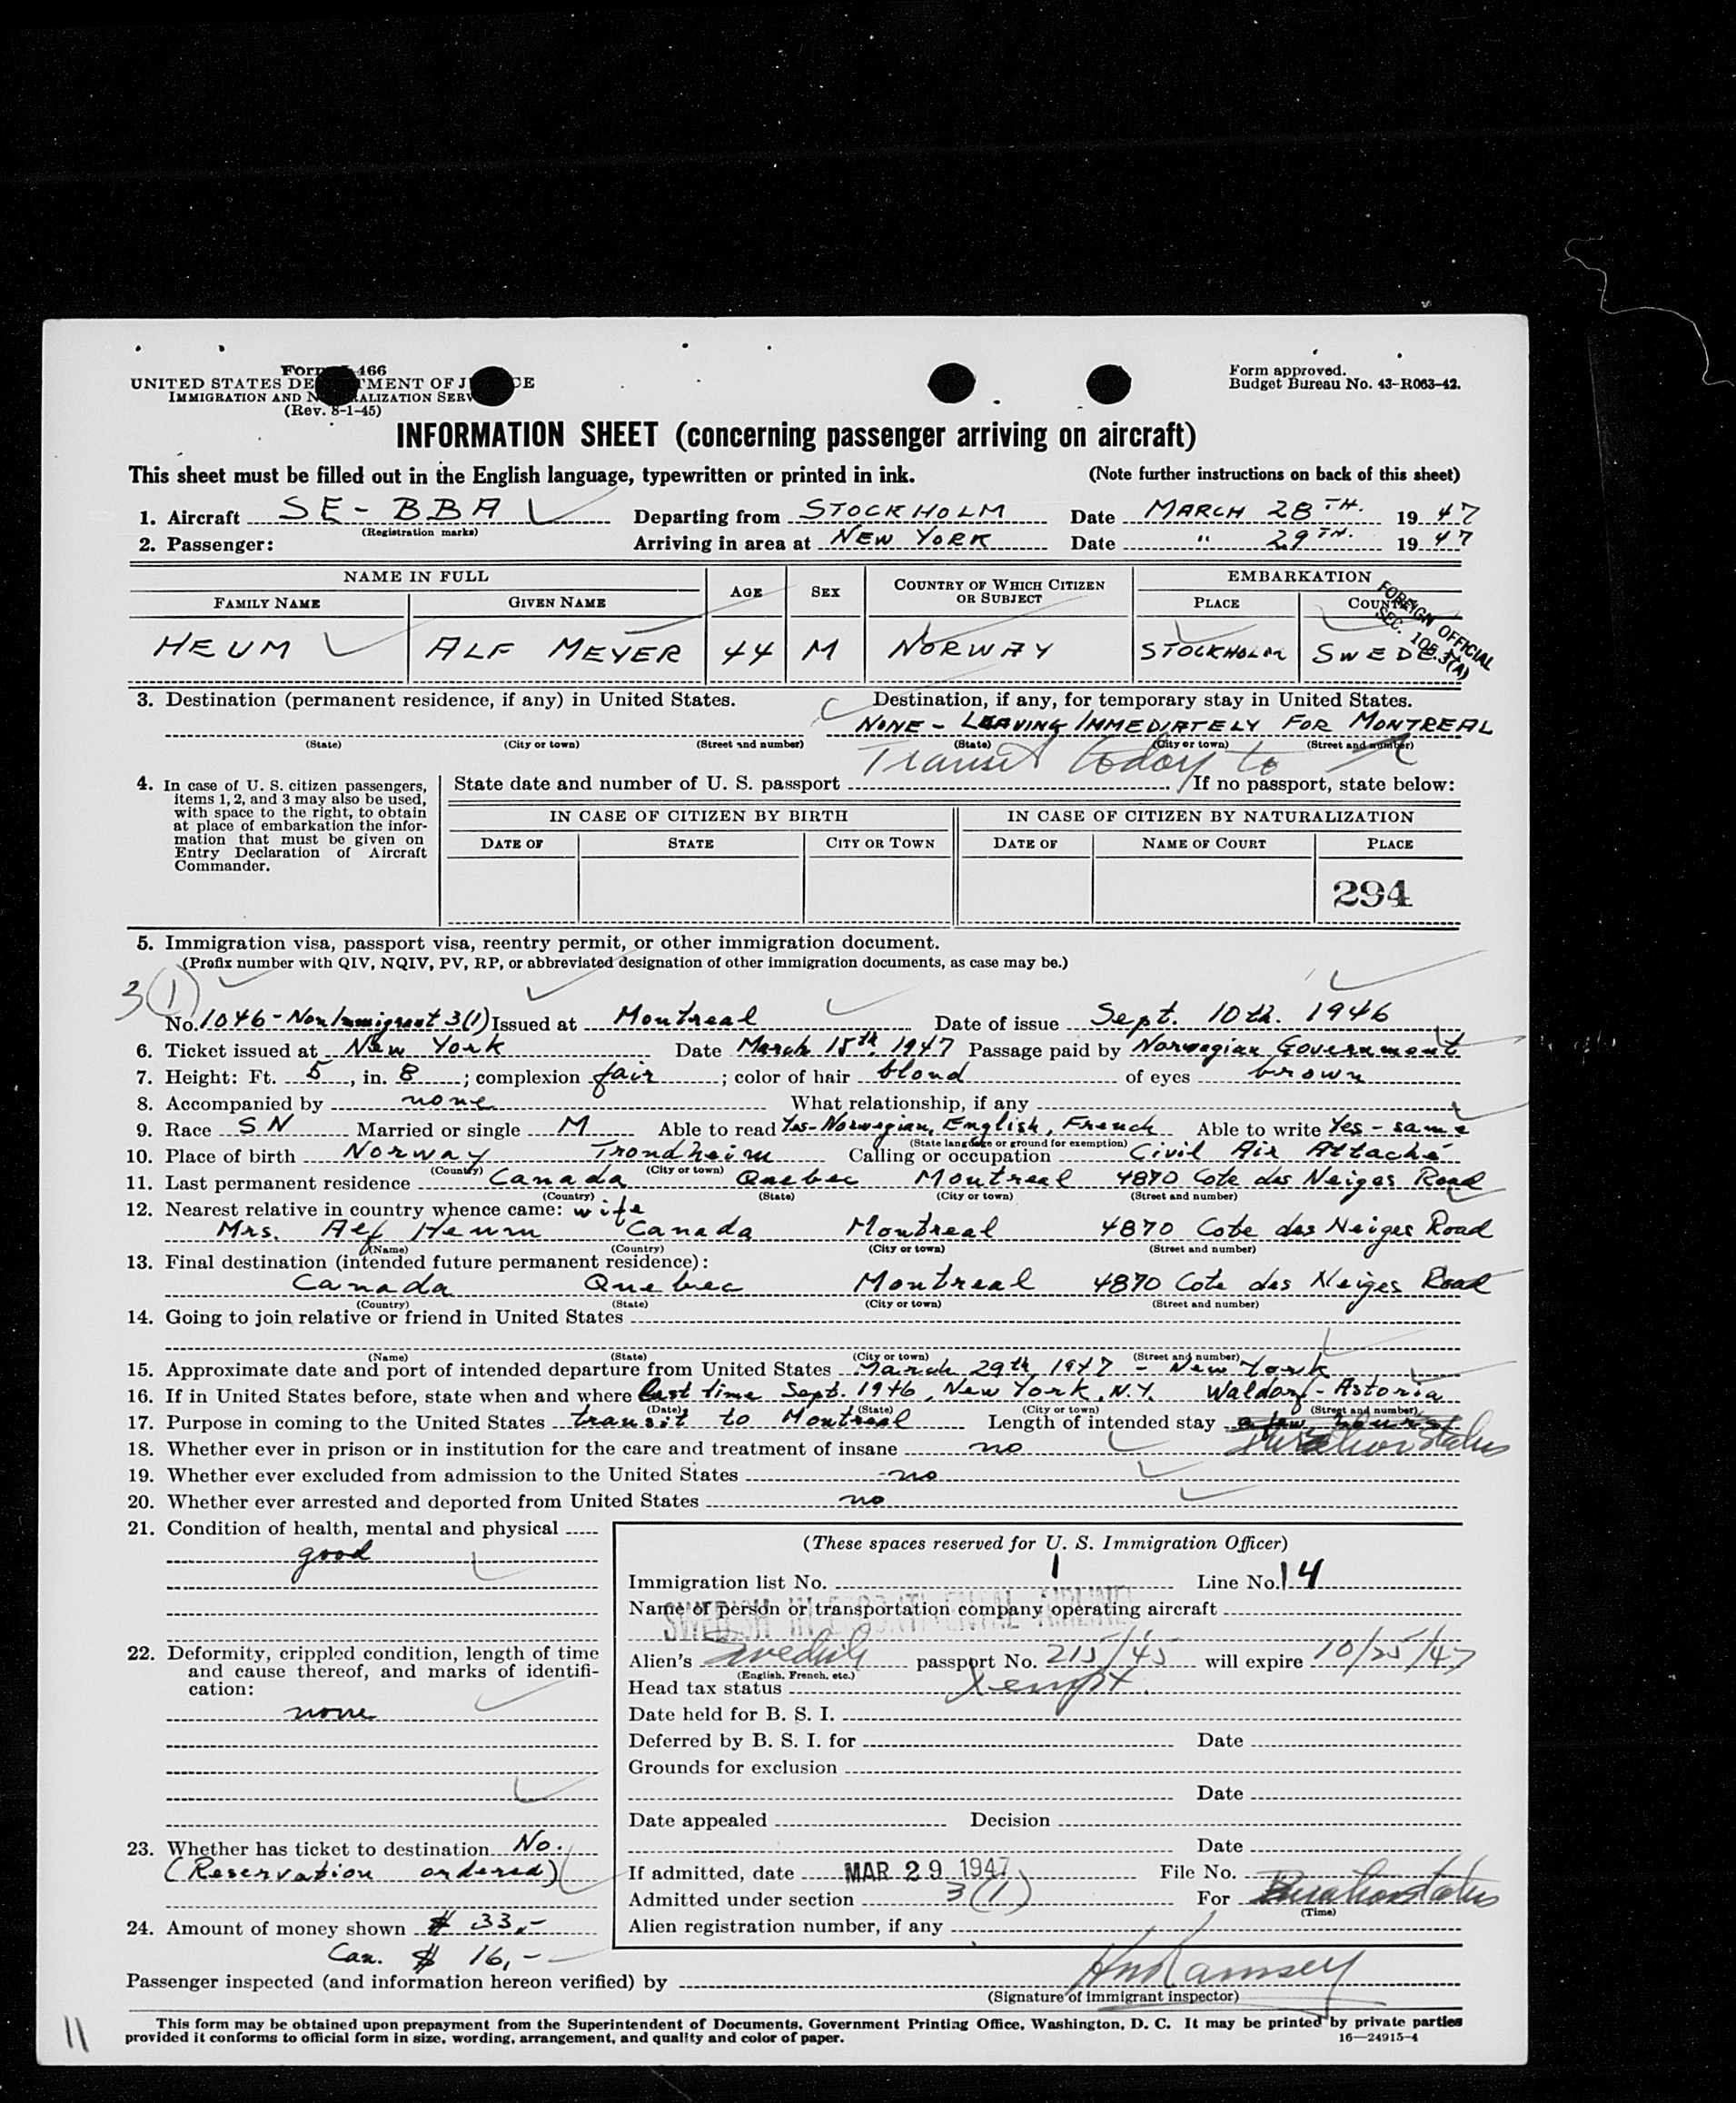 Form 466
Form approved.
UNITED STATES DE TMENT OF J CE
Budget Bureau No. 43-R063-42.
IMMIGRATION AND N ALIZATION SERV
(Rev. 8-1-45)
INFORMATION SHEET (concerning passenger arriving on aircraft)
This sheet must be filled out in the English language, typewritten or printed in ink. (Note further instructions on back of this sheet)
1. Aircraft SE-BBA Departing from STOCKHOLM Date MARCH 28TH. 1947
(Registration marks)
2. Passenger: Arriving in area at NEW YORK Date " 29TH. 1947
NAME IN FULL AGE SEX COUNTRY OF WHICH CITIZEN OR SUBJECT EMBARKATION
FAMILY NAME GIVEN NAME PLACE COUNTRY
FOREIGN OFFICIAL
SEC. 105.3(A)
HEUM ALF MEYER 44 M NORWAY STOCKHOLM SWEDEN
3. Destination (permanent residence, if any) in United States. Destination, if any, for temporary stay in United States.
NONE - LEAVING IMMEDIATELY FOR MONTREAL
(State) (City or town) (Street and number) (State) (City or town) (Street and number)
Transit today to
4. In case of U. S. citizen passengers, items 1, 2, and 3 may also be used, with space to the right, to obtain at place of embarkation the information that must be given on Entry Declaration of Aircraft Commander.
State date and number of U. S. passport . If no passport, state below:
IN CASE OF CITIZEN BY BIRTH IN CASE OF CITIZEN BY NATURALIZATION
DATE OF STATE CITY OR TOWN DATE OF NAME OF COURT PLACE
294
5. Immigration visa, passport visa, reentry permit, or other immigration document.
(Prefix number with QIV, NQIV, PV, RP, or abbreviated designation of other immigration documents, as case may be.)
3(1)
No. 1046-NonImmigrant 3(1) Issued at Montreal Date of issue Sept. 10th. 1946
6. Ticket issued at New York Date March 15th. 1947 Passage paid by Norwegian Government
7. Height: Ft. 5, in. 8; complexion fair; color of hair blond of eyes brown
8. Accompanied by none What relationship, if any
9. Race SN Married or single M Able to read Yes-Norwegian, English, French Able to write Yes - same
(State language or ground for exemption)
10. Place of birth Norway Trondheim Calling or occupation Civil Air Attaché
(Country) (City or town)
11. Last permanent residence Canada Quebec Montreal 4870 Cote des Neiges Road
(Country) (State) (City or town) (Street and number)
12. Nearest relative in country whence came: wife
Mrs. Alf Heum Canada Montreal 4870 Cote des Neiges Road
(Name) (Country) (City or town) (Street and number)
13. Final destination (intended future permanent residence):
Canada Quebec Montreal 4870 Cote des Neiges Road
(Country) (State) (City or town) (Street and number)
14. Going to join relative or friend in United States
(Name) (State) (City or town) (Street and number)
15. Approximate date and port of intended departure from United States March 29th 1947 - New York
16. If in United States before, state when and where last time Sept. 1946, New York, N.Y. Waldorf-Astoria
(Date) (State) (City or town) (Street and number)
17. Purpose in coming to the United States transit to Montreal Length of intended stay a few hours
18. Whether ever in prison or in institution for the care and treatment of insane no Duration Status
19. Whether ever excluded from admission to the United States -no
20. Whether ever arrested and deported from United States no
21. Condition of health, mental and physical
good
22. Deformity, crippled condition, length of time and cause thereof, and marks of identification:
none
23. Whether has ticket to destination No.
(Reservation ordered)
24. Amount of money shown $ 33.-
Can. $ 16,-
(These spaces reserved for U. S. Immigration Officer)
Immigration list No. 1 Line No. 14
Name of person or transportation company operating aircraft
SWEDISH INTERCONTINENTAL AIRLINES
Alien's Swedish passport No. 215/45 will expire 10/25/47
(English, French, etc.)
Head tax status Xempt.
Date held for B. S. I.
Deferred by B. S. I. for Date
Grounds for exclusion
Date
Date appealed Decision
Date
If admitted, date MAR 29 1947 File No.
Admitted under section 3(1) For Duration status
(Time)
Alien registration number, if any
Passenger inspected (and information hereon verified) by Ramsey
(Signature of immigrant inspector)
This form may be obtained upon prepayment from the Superintendent of Documents, Government Printing Office, Washington, D. C. It may be printed by private parties
provided it conforms to official form in size, wording, arrangement, and quality and color of paper. 16—24915-4
11